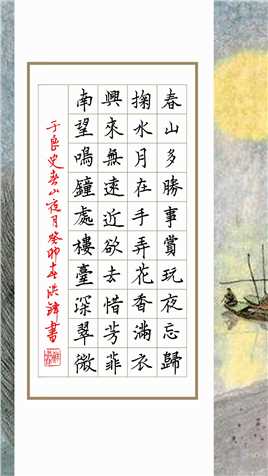 春山多勝事賞玩夜忘歸
掬水月在手弄花香滿衣
興來無遠近欲去惜芳菲
南望鳴鐘處樓臺深翠微
于良史春山夜月癸卯春洪書